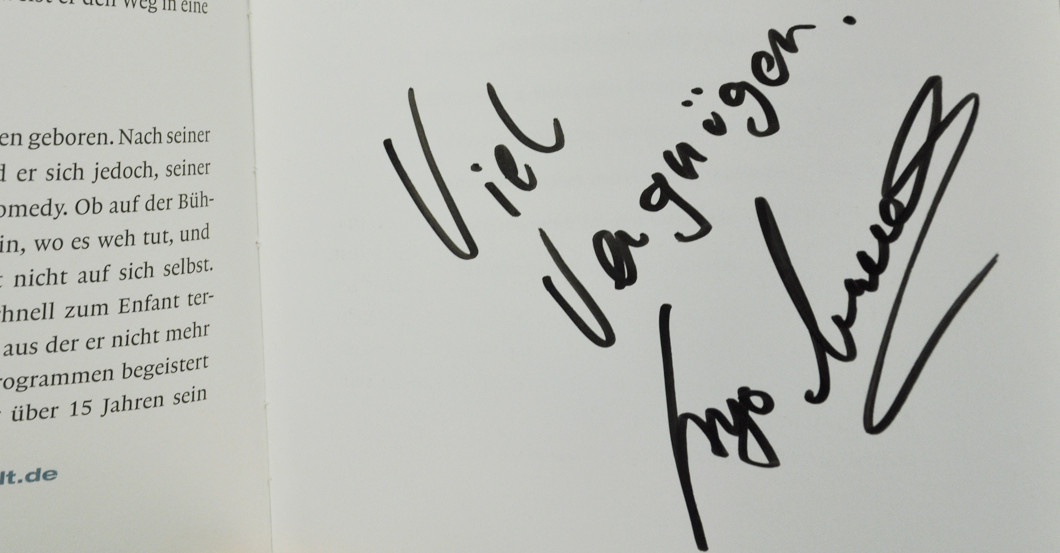 den Weg in eine
en geboren. Nach seiner
d er sich jedoch, seiner
omedy. Ob auf der Büh-
in, wo es weh tut, und
t nicht auf sich selbst.
hnell zum Enfant ter-
aus der er nicht mehr
rogrammen begeistert
über 15 Jahren sein
lt.de
Viel
Vergnügen.
Ingo